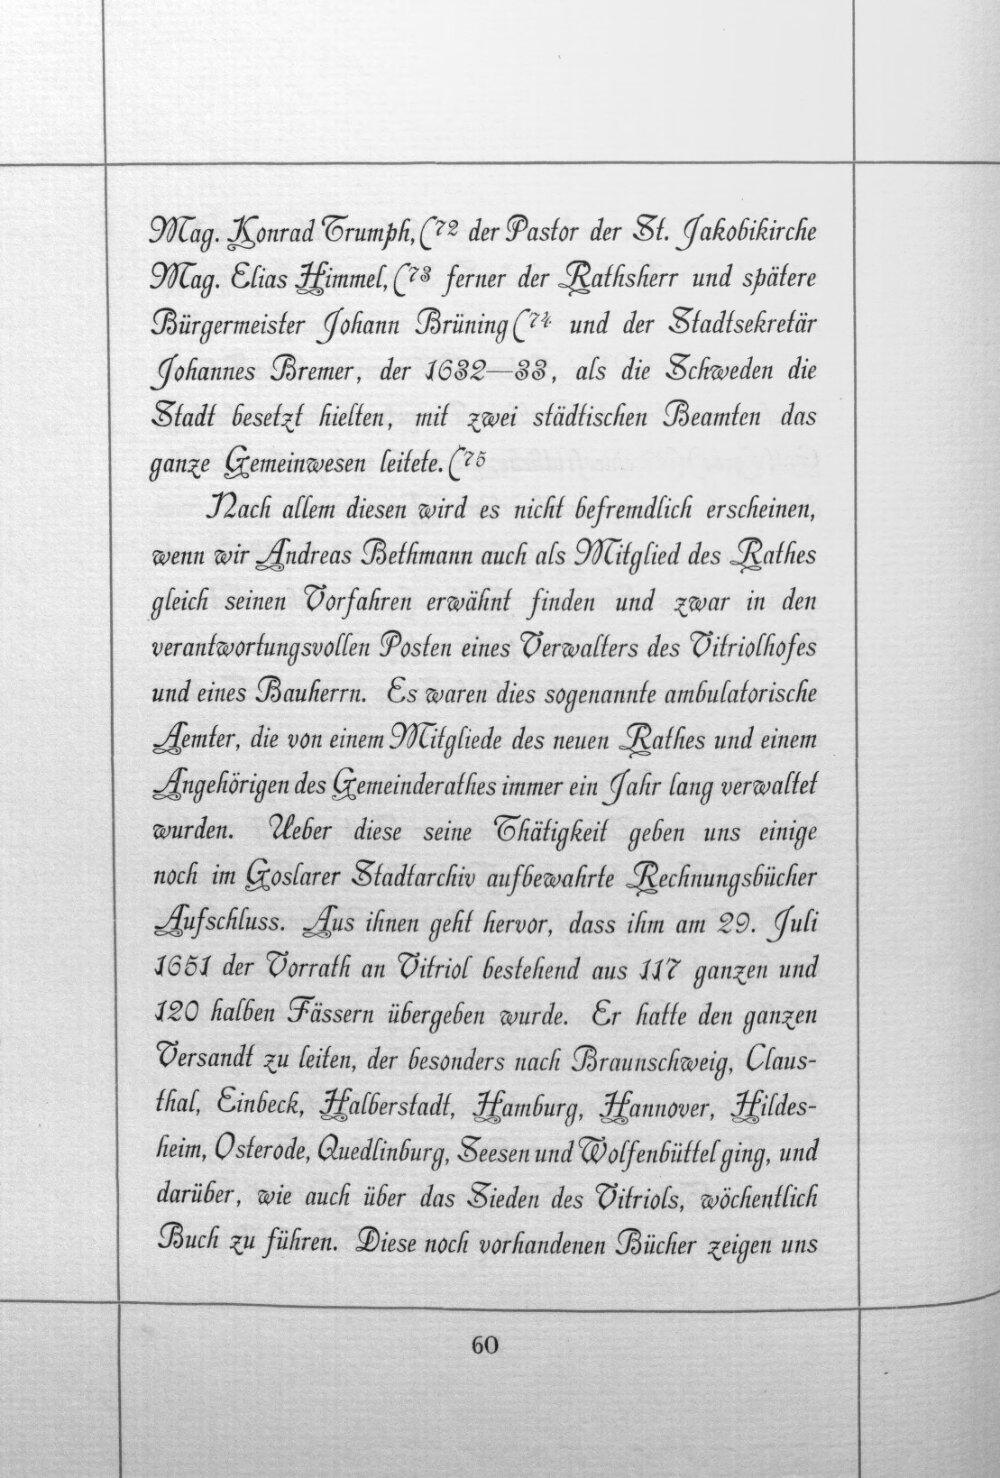 Mag. Konrad Trumph,(72 der Pastor der St. Jakobikirche
Mag. Elias Himmel,(73 ferner der Rathsherr und spätere
Bürgermeister Johann Brüning(74 und der Stadtsekretär
Johannes Bremer, der 1632—33, als die Schweden die
Stadt besetzt hielten, mit zwei städtischen Beamten das
ganze Gemeinwesen leitete.(75
Nach allem diesen wird es nicht befremdlich erscheinen,
wenn wir Andreas Bethmann auch als Mitglied des Rathes
gleich seinen Vorfahren erwähnt finden und zwar in den
verantwortungsvollen Posten eines Verwalters des Vitriolhofes
und eines Bauherrn. Es waren dies sogenannte ambulatorische
Aemter, die von einem Mitgliede des neuen Rathes und einem
Angehörigen des Gemeinderathes immer ein Jahr lang verwaltet
wurden. Ueber diese seine Thätigkeit geben uns einige
noch im Goslarer Stadtarchiv aufbewahrte Rechnungsbücher
Aufschluss. Aus ihnen geht hervor, dass ihm am 29. Juli
1651 der Vorrath an Vitriol bestehend aus 117 ganzen und
120 halben Fässern übergeben wurde. Er hatte den ganzen
Versandt zu leiten, der besonders nach Braunschweig, Claus-
thal, Einbeck, Halberstadt, Hamburg, Hannover, Hildes-
heim, Osterode, Quedlinburg, Seesen und Wolfenbüttel ging, und
darüber, wie auch über das Sieden des Vitriols, wöchentlich
Buch zu führen. Diese noch vorhandenen Bücher zeigen uns
60